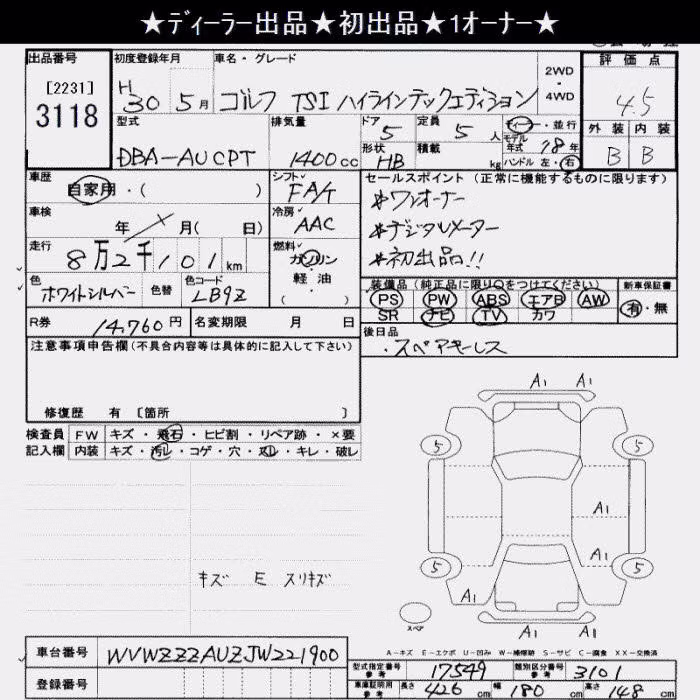 ★ディーラー出品★初出品★1オーナー★
出品番号
[2231]
3118
初度登録年月
H 30 5月
車名・グレード
ゴルフ TSI ハイラインテックエディション
2WD・4WD
評価点
4.5
外装 内装
B B
型式
DBA-AUCPT
排気量
1400cc
ドア 5
定員 5人
形状 HB
積載 kg
ディーラー・並行
モデル年式 18年
ハンドル 左・右
車歴
自家用・( )
シフト
FA/T
車検
年 月( 日)
冷房
AAC
走行
8万2千101km
燃料
ガソリン
軽油
( )
色
ホワイトシルバー
色替
色コード
LB9Z
R券 14,760円
名変期限 月 日
セールスポイント(正常に機能するものに限ります)
*ワンオーナー
*デジタルメーター
*初出品!!
装備品(純正品に限り○をつけてください)
PS PW ABS エアB AW
SR ナビ TV カワ
新車保証書
有・無
後日品
・スペアキーレス
注意事項申告欄(不具合内容等は具体的に記入して下さい)
修復歴 有 [箇所 ]
検査員記入欄
FW キズ・飛石・ヒビ割・リペア跡・×要
内装 キズ・汚レ・コゲ・穴・スレ・キレ・破レ
キズ E スリキズ
A1 A1
5 5
A1
A1
5 5
A1
A1 A1
スペア
A-キズ E-エクボ U-凹み W-補修跡 S-サビ C-腐食 XX-交換済
車台番号
WVWZZZAUZJW221900
登録番号
型式指定番号参考 17549
類別区分番号参考 3101
車庫証明用参考 長さ 426cm 幅 180cm 高さ 148cm